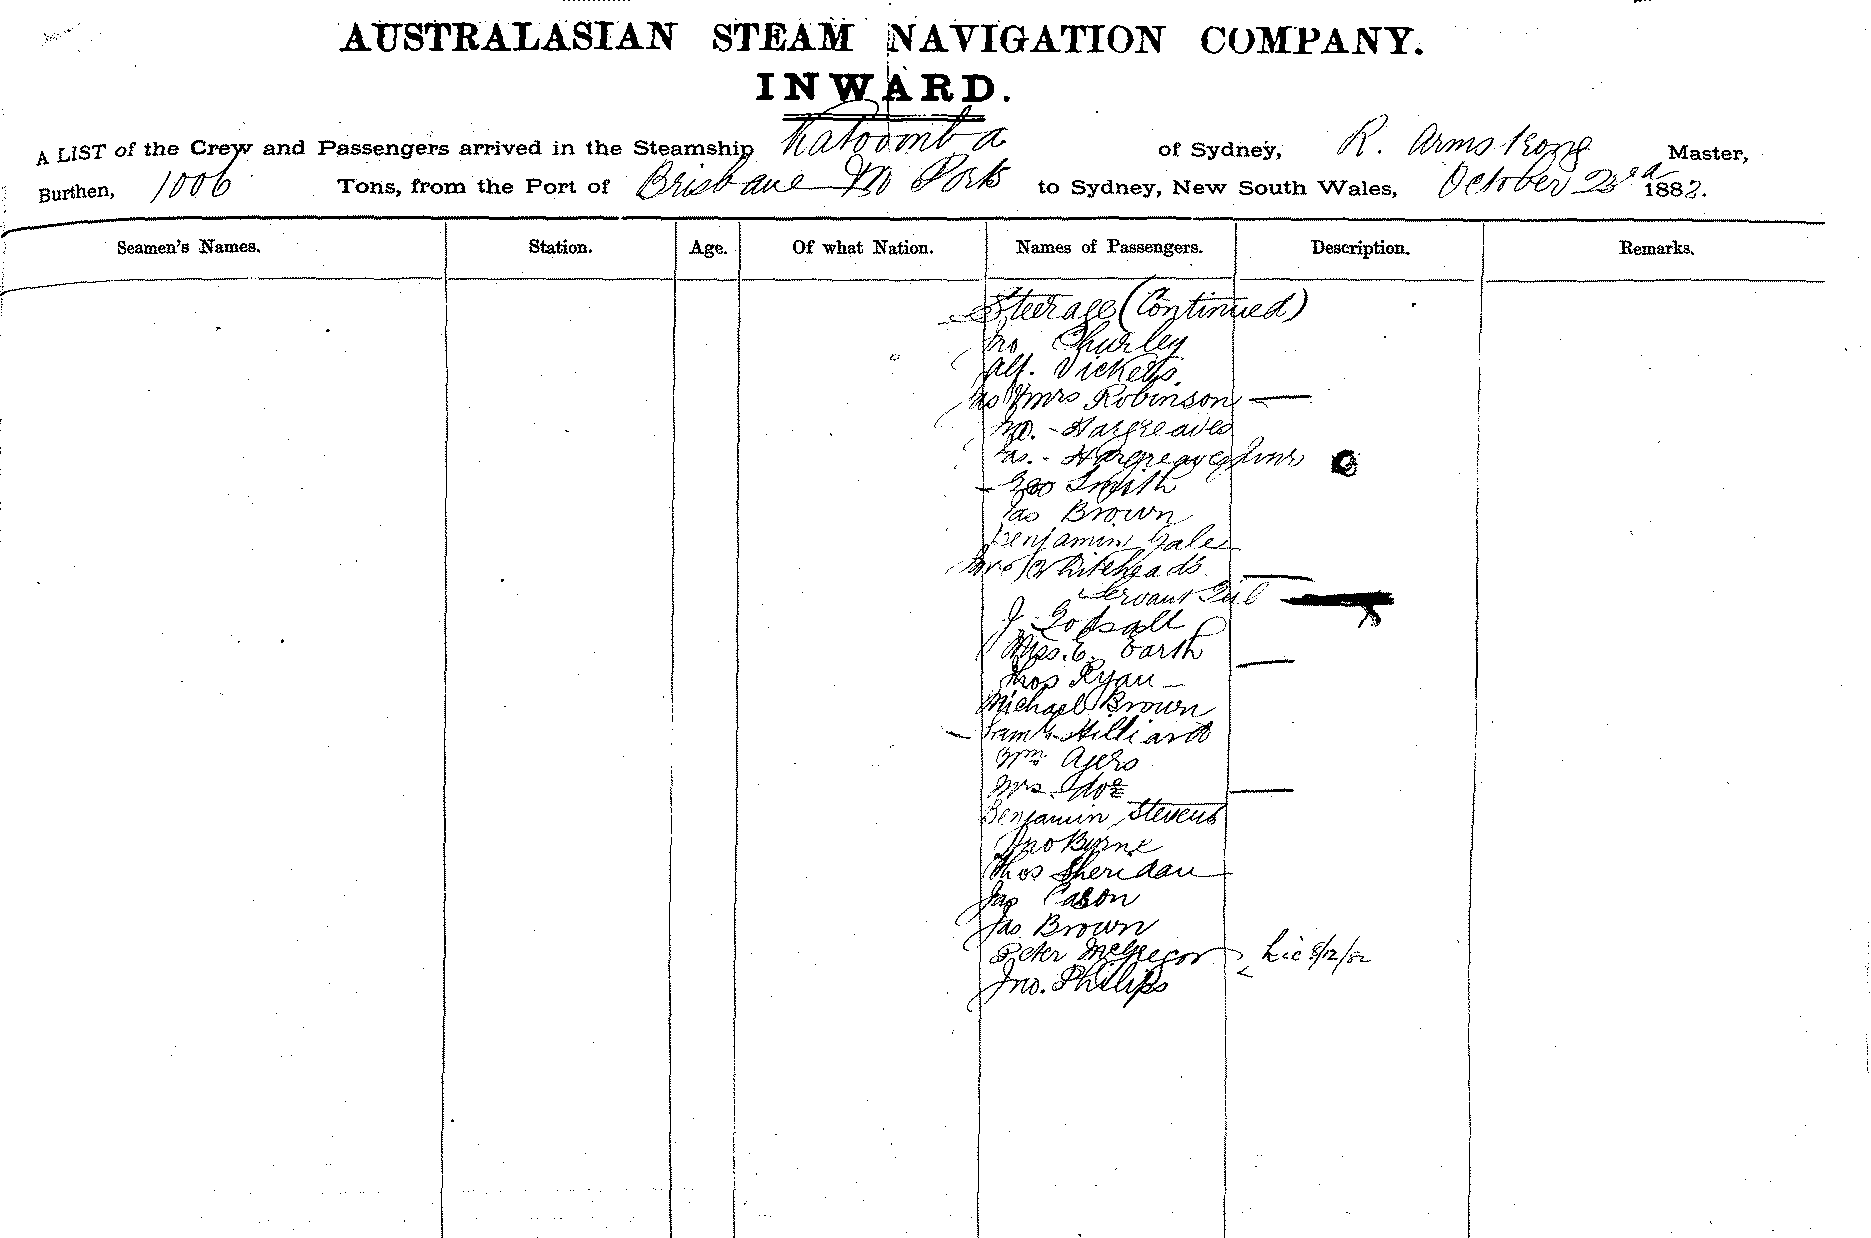 AUSTRALASIAN STEAM NAVIGATION COMPANY.
INWARD.
A LIST of the Crew and Passengers arrived in the Steamship Katoomba of Sydney, R. Armstrong Master,
Burthen, 1006 Tons, from the Port of Brisbane M Ports to Sydney, New South Wales, October 23rd 1882.
Seamen's Names. Station. Age. Of what Nation. Names of Passengers. Description. Remarks.
Steerage (Continued)
Jno Churley
Alf. Vickers.
Jas & Mrs Robinson —
Jno. - Hargreaves
Jas. - Hargreaves Junr
Geo Smith
Jas Brown
Benjamin Gale
Whiteheads
Servant Girl
J. Godsall
Miss. E. Earth
Thos Ryan —
Michael Brown
Saml Hilliard
Wm Ayers
Mrs do
Benjamin Stevens
Jno Byrne
Thos Sheridan
Jas Cason
Jas Brown
Peter McGregor Lic 8/12/82
Jno. Philips